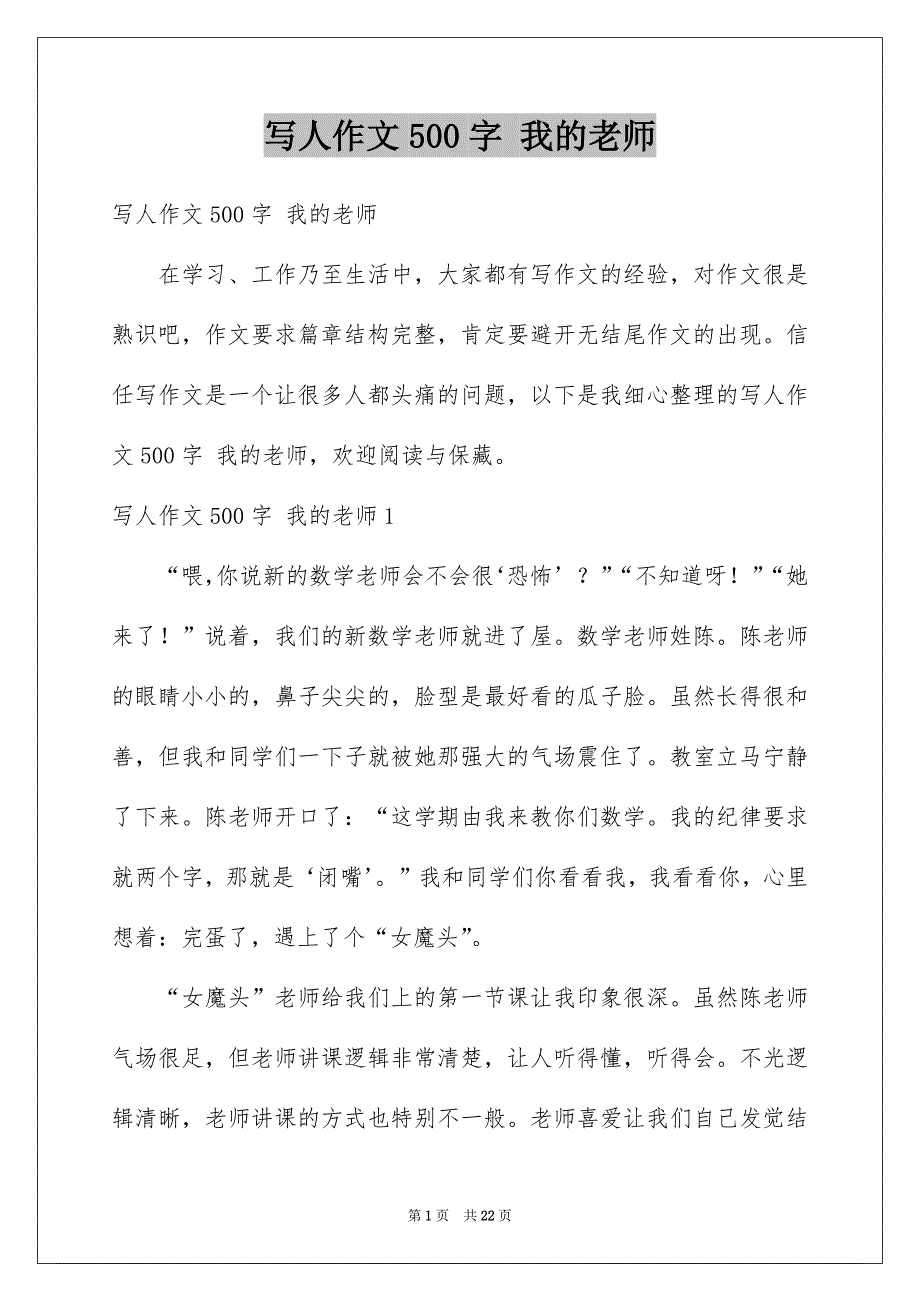 写人作文500字 我的老师
写人作文500字 我的老师
在学习、工作乃至生活中，大家都有写作文的经验，对作文很是
熟识吧，作文要求篇章结构完整，肯定要避开无结尾作文的出现。信
任写作文是一个让很多人都头痛的问题，以下是我细心整理的写人作
文500字 我的老师，欢迎阅读与保藏。
写人作文500字 我的老师1
“喂,你说新的数学老师会不会很‘恐怖’？”“不知道呀！”“她
来了！”说着，我们的新数学老师就进了屋。数学老师姓陈。陈老师
的眼睛小小的，鼻子尖尖的，脸型是最好看的瓜子脸。虽然长得很和
善，但我和同学们一下子就被她那强大的气场震住了。教室立马宁静
了下来。陈老师开口了：“这学期由我来教你们数学。我的纪律要求
就两个字，那就是‘闭嘴’。”我和同学们你看看我，我看看你，心里
想着：完蛋了，遇上了个“女魔头”。
“女魔头”老师给我们上的第一节课让我印象很深。虽然陈老师
气场很足，但老师讲课逻辑非常清楚，让人听得懂，听得会。不光逻
辑清晰，老师讲课的方式也特别不一般。老师喜爱让我们自己发觉结
第1页 共22页